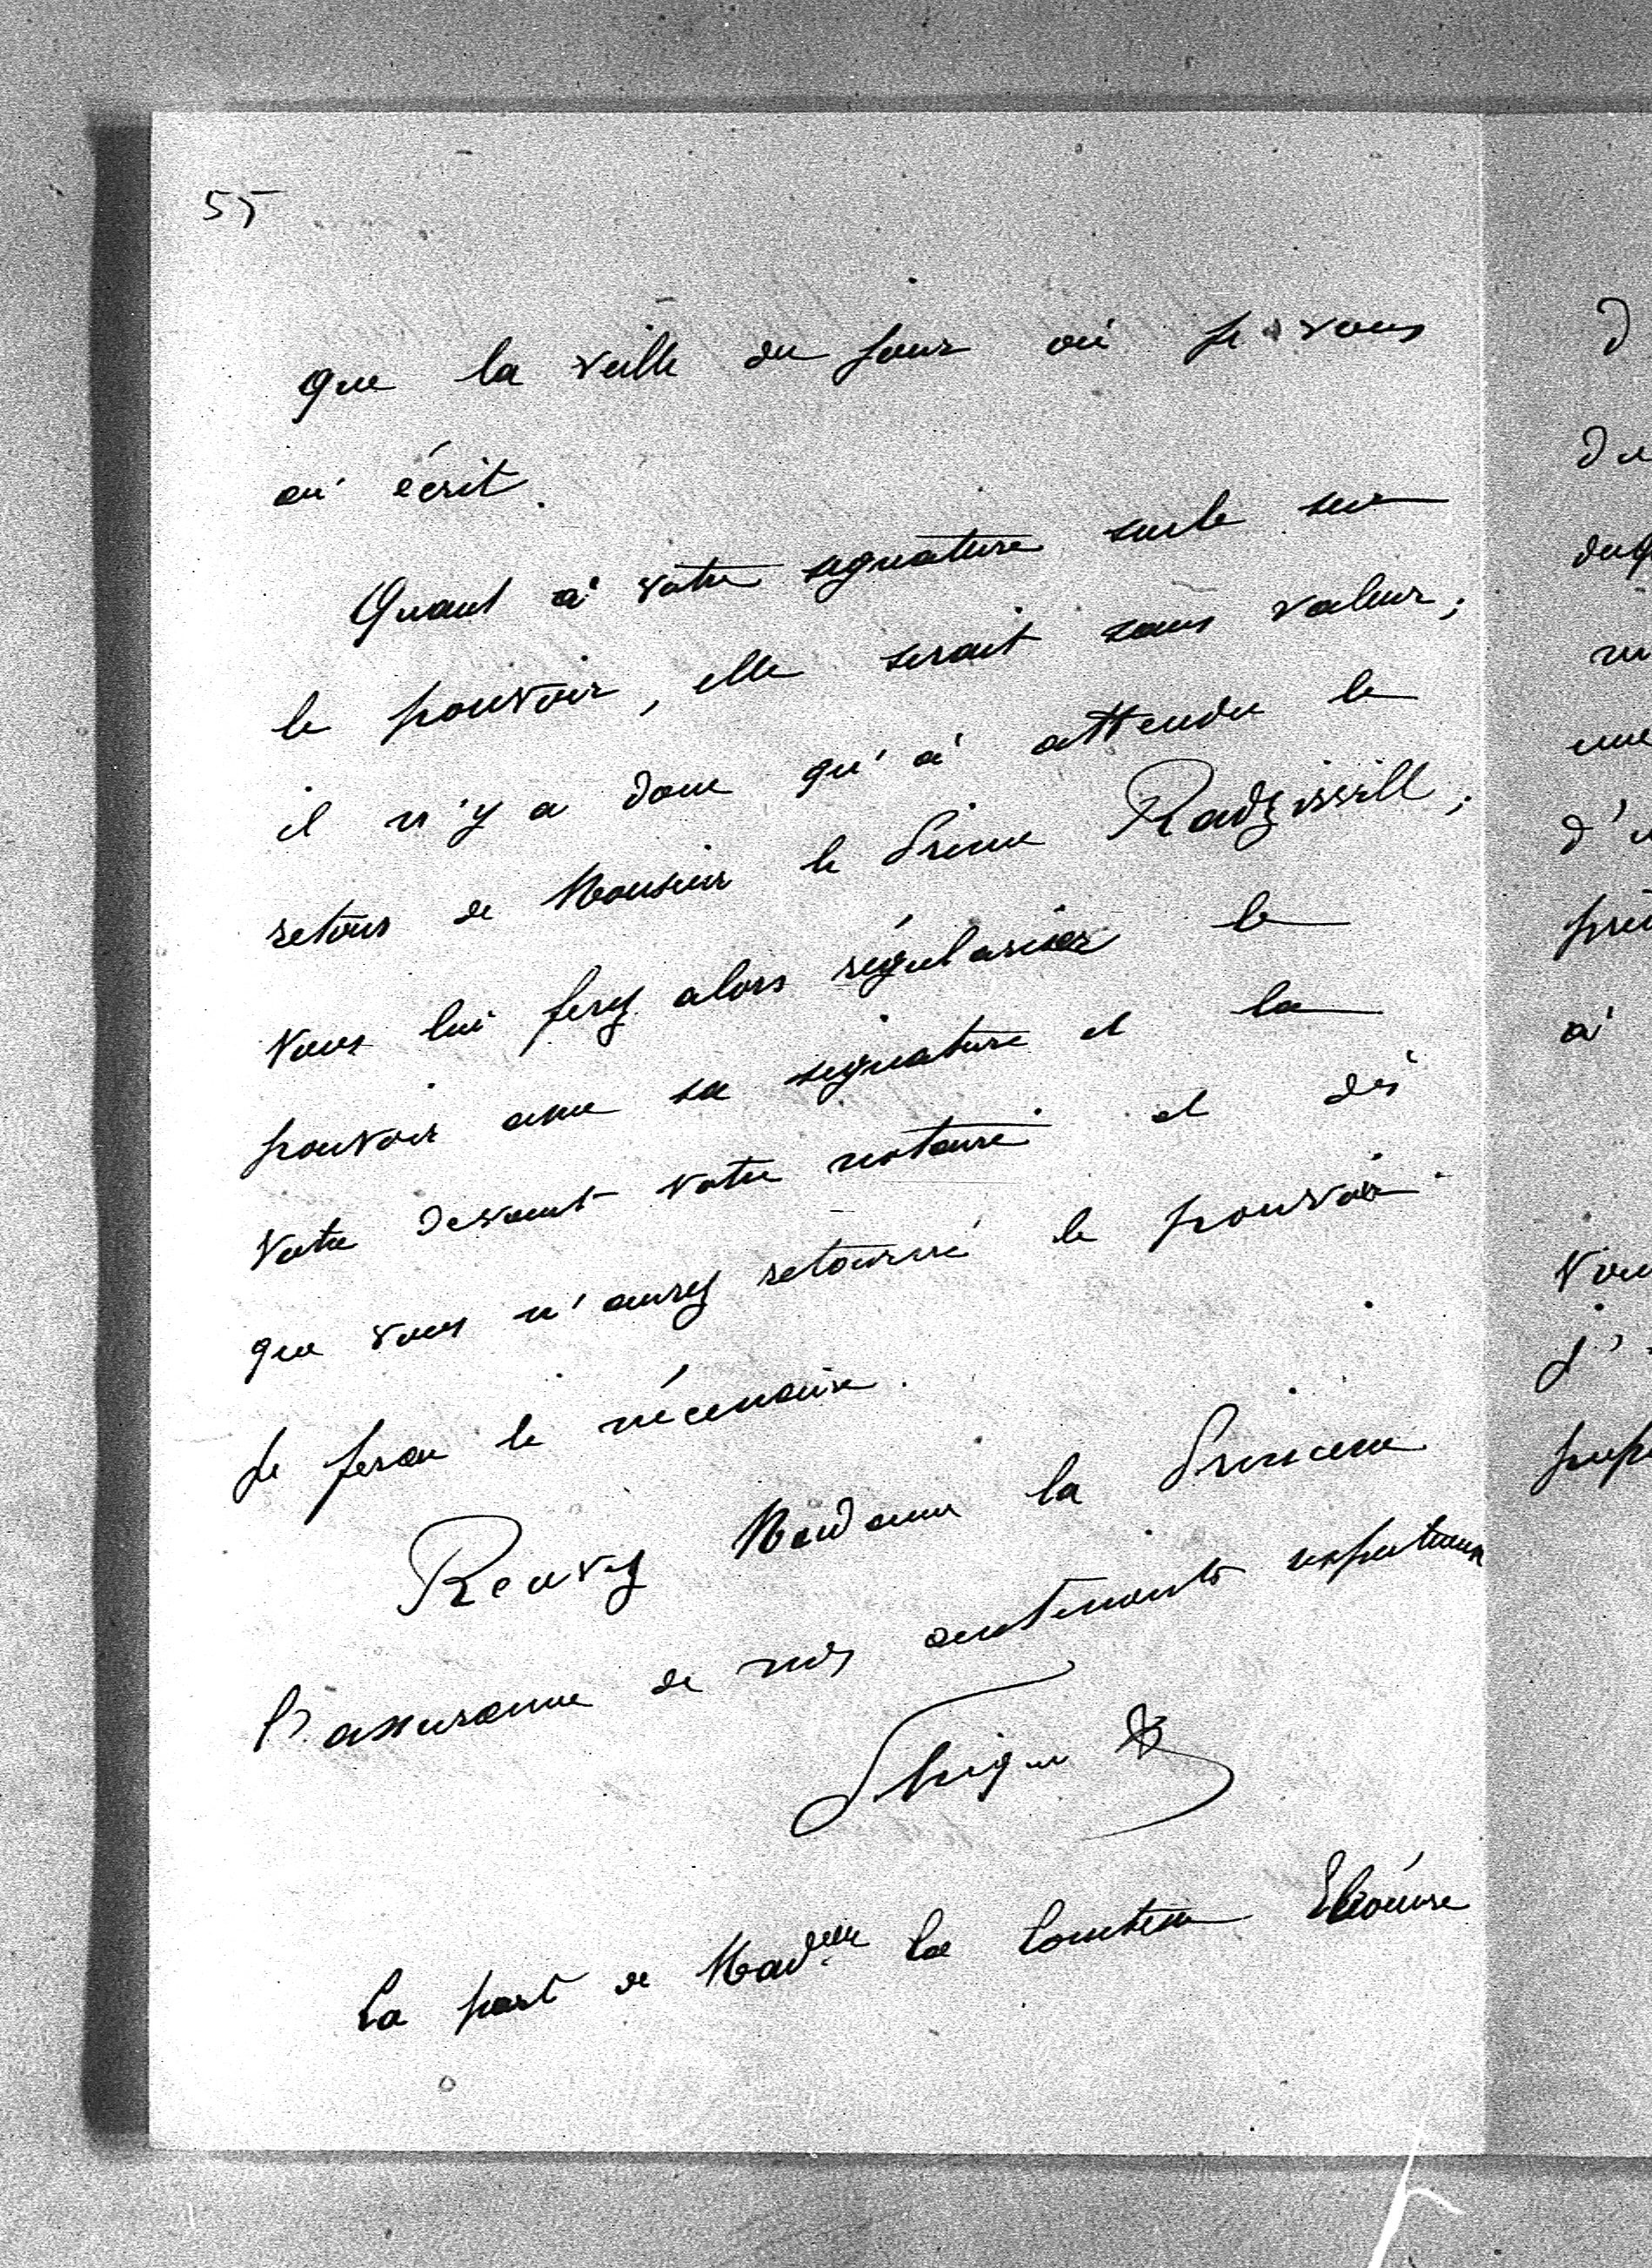 55
que la veille du jour où je vous
ai écrit.
Quant à votre signature sur le
le pouvoir, elle serait sans valeur;
il n'y a donc qu'à attendre le
retour de Monsieur le Prince Radziwill;
vous lui ferez alors régulariser le
pouvoir avec sa signature et la
votre devant votre notaire et dès
que vous m'aurez retourné le pouvoir
je ferai le nécessaire.
Recevez Madame la Princesse
l'assurance de mes sentiments respectueux
La part de Mad^elle la Comtesse Eléonore